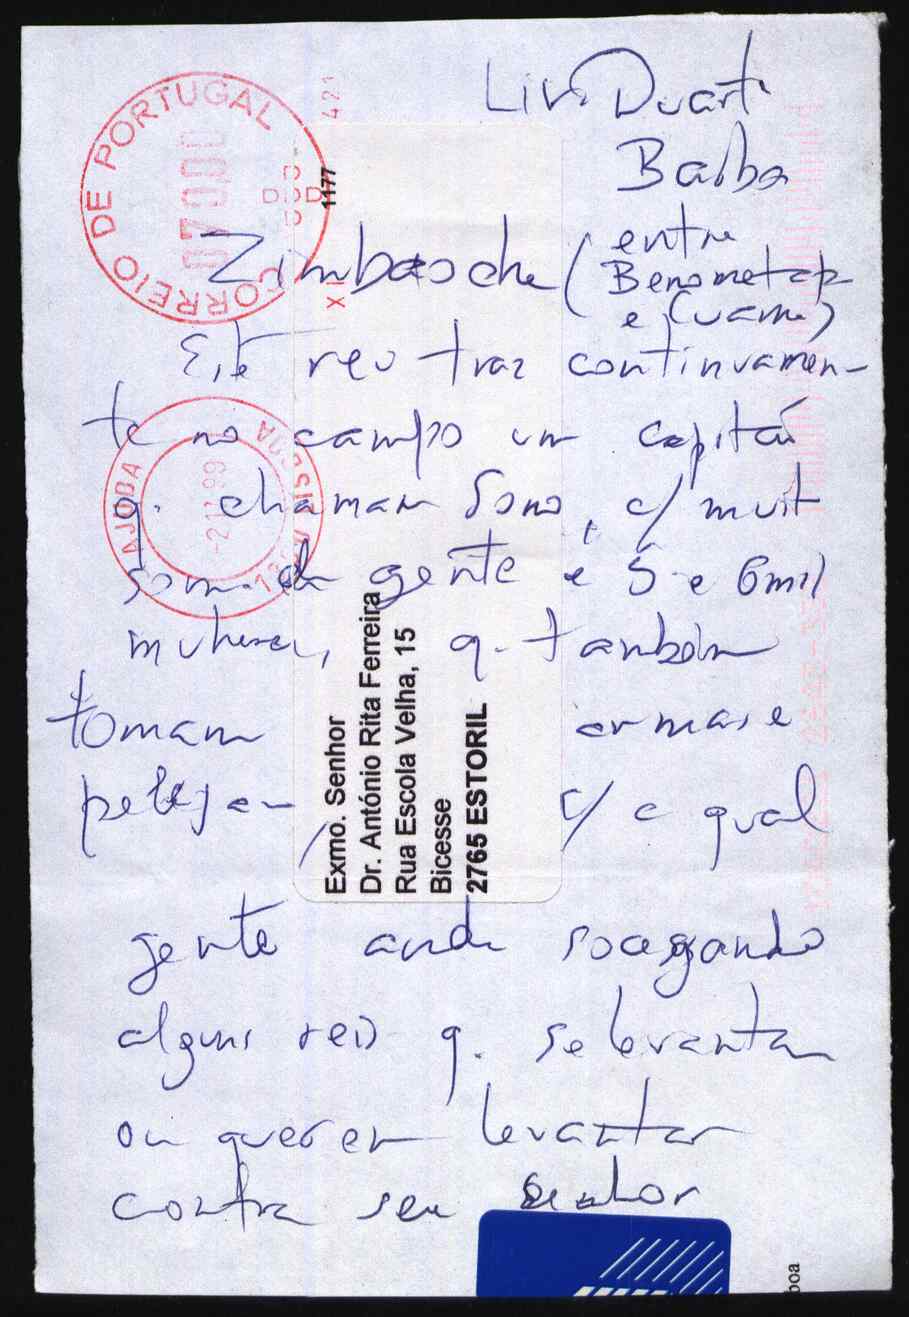 Livro Duarte
Barbosa
Zimbaoche (entre
Benometapa
e Çuama)
Este rei traz continuamen-
te no campo um capitão
q. chamam Sono, c/ muit
soma de gente e 5 e 6 mil
mulheres, q. também
tomam armas e
pelejam, c/ a qual
gente anda socegando
alguns reis q. se levantam
ou querem levantar
contra seu senhor
CORREIO DE PORTUGAL
0700.0
X 421
1177
AJUDA
1350 LISBOA
-2 11 99
Exmo. Senhor
Dr. António Rita Ferreira
Rua Escola Velha, 15
Bicesse
2765 ESTORIL
boa